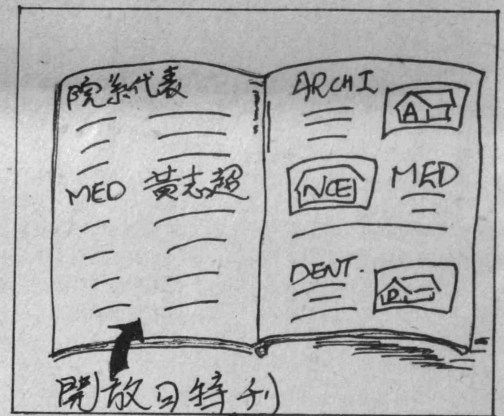 院系代表
MED 黃志超
ARCHI
A
MED
DENT.
D
開放日特刊